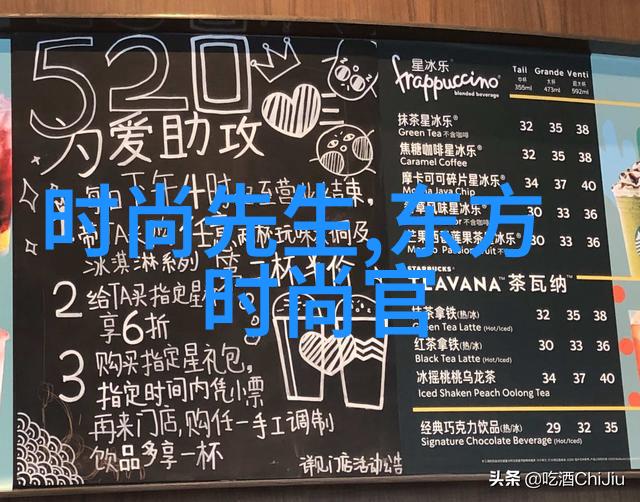 520
为爱助攻
时尚先生,东方
时尚官
冰淇淋系列
2 给TA买指定星
享6折
3 购买指定星礼包,
指定时间内凭小票
再来门店,购任一手工调制
饮品多享一杯
详见门店活动公告
星冰乐®
frappuccino®
blended beverage
Tall Grande Venti
中杯 大杯 超大杯
355ml 473ml 592ml
抹茶星冰乐® 32 35 38
Green Tea 不含咖啡
焦糖咖啡星冰乐® 32 35 38
Caramel Coffee
摩卡可可碎片星冰乐® 34 37 40
Mocha Java Chip
风味星冰乐® 30 33 36
不含咖啡
芒果西番莲果茶星冰乐® 30 33 36
Mango Passion Fruit
STARBUCKS
TEAVANA™ 茶瓦纳™
抹茶拿铁(热/冰) 32 35 38
Green Tea Latte (Hot/Iced)
红茶拿铁(热/冰) 30 33 36
Black Tea Latte (Hot/Iced)
冰摇桃桃乌龙茶 34 37 40
Iced Shaken Peach Oolong Tea
经典巧克力饮品(热/冰) 29 32 35
Signature Chocolate Beverage (Hot/Iced)
头条 @吃酒ChiJiu